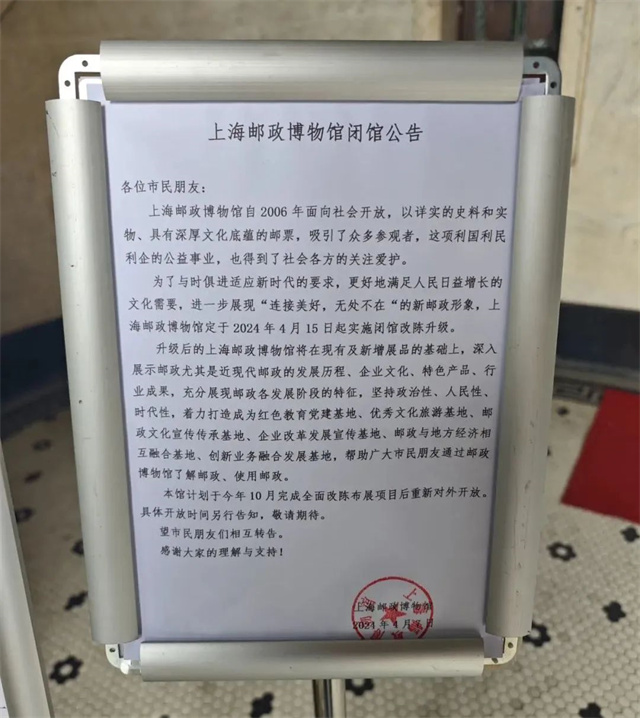 上海邮政博物馆闭馆公告
各位市民朋友：
上海邮政博物馆自2006年面向社会开放，以详实的史料和实
物、具有深厚文化底蕴的邮票，吸引了众多参观者，这项利国利民
利企的公益事业，也得到了社会各方的关注爱护。
为了与时俱进适应新时代的要求，更好地满足人民日益增长的
文化需要，进一步展现“连接美好，无处不在“的新邮政形象，上
海邮政博物馆定于2024年4月15日起实施闭馆改陈升级。
升级后的上海邮政博物馆将在现有及新增展品的基础上，深入
展示邮政尤其是近现代邮政的发展历程、企业文化、特色产品、行
业成果，充分展现邮政各发展阶段的特征，坚持政治性、人民性、
时代性，着力打造成为红色教育党建基地、优秀文化旅游基地、邮
政文化宣传传承基地、企业改革发展宣传基地、邮政与地方经济相
互融合基地、创新业务融合发展基地，帮助广大市民朋友通过邮政
博物馆了解邮政、使用邮政。
本馆计划于今年10月完成全面改陈布展项目后重新对外开放。
具体开放时间另行告知，敬请期待。
望市民朋友们相互转告。
感谢大家的理解与支持！
上海邮政博物馆
2024年4月 日